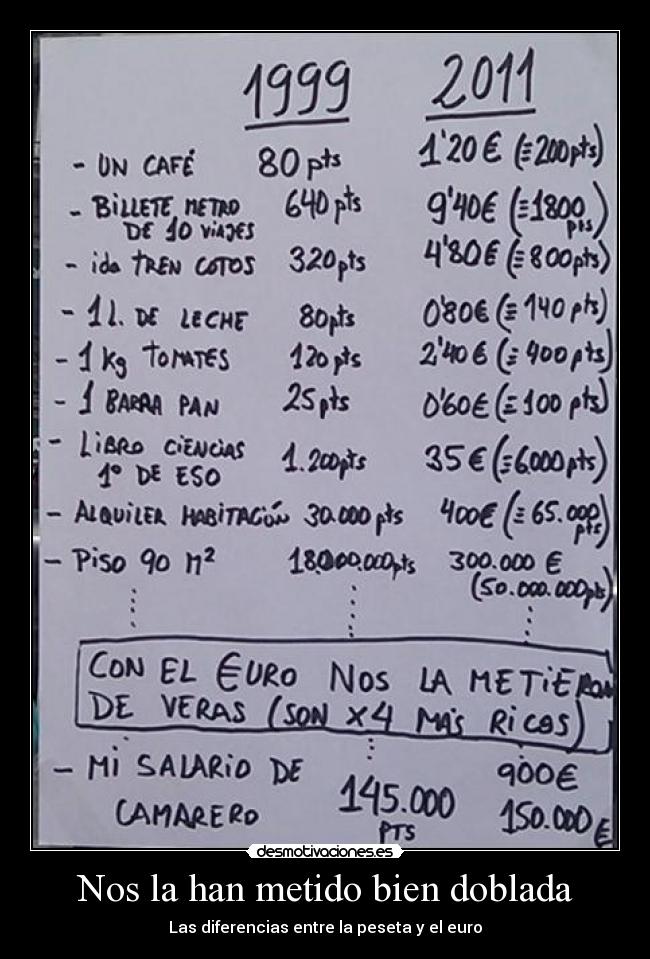 1999 2011
- UN CAFÉ 80 pts 1'20 € (≡200pts)
- BILLETE METRO 640 pts 9'40€ (≡1800 pts)
DE 10 VIAJES
- ida TREN COTOS 320pts 4'80€ (≡800pts)
- 1 l. DE LECHE 80pts 0'80€ (≡140 pts)
- 1 Kg TOMATES 120 pts 2'40€ (≡400 pts)
- 1 BARRA PAN 25 pts 0'60€ (≡100 pts)
- LIBRO CIENCIAS 1.200pts 35 € (≡6.000pts)
1º DE ESO
- ALQUILER HABITACIÓN 30.000 pts 400€ (≡65.000 pts)
- PISO 90 M² 18.000.000pts 300.000 €
(50.000.000pts)
CON EL €URO NOS LA METIERON
DE VERAS (SON X4 MÁS RICOS)
- MI SALARIO DE 145.000 900€
CAMARERO PTS 150.000 €
desmotivaciones.es
Nos la han metido bien doblada
Las diferencias entre la peseta y el euro